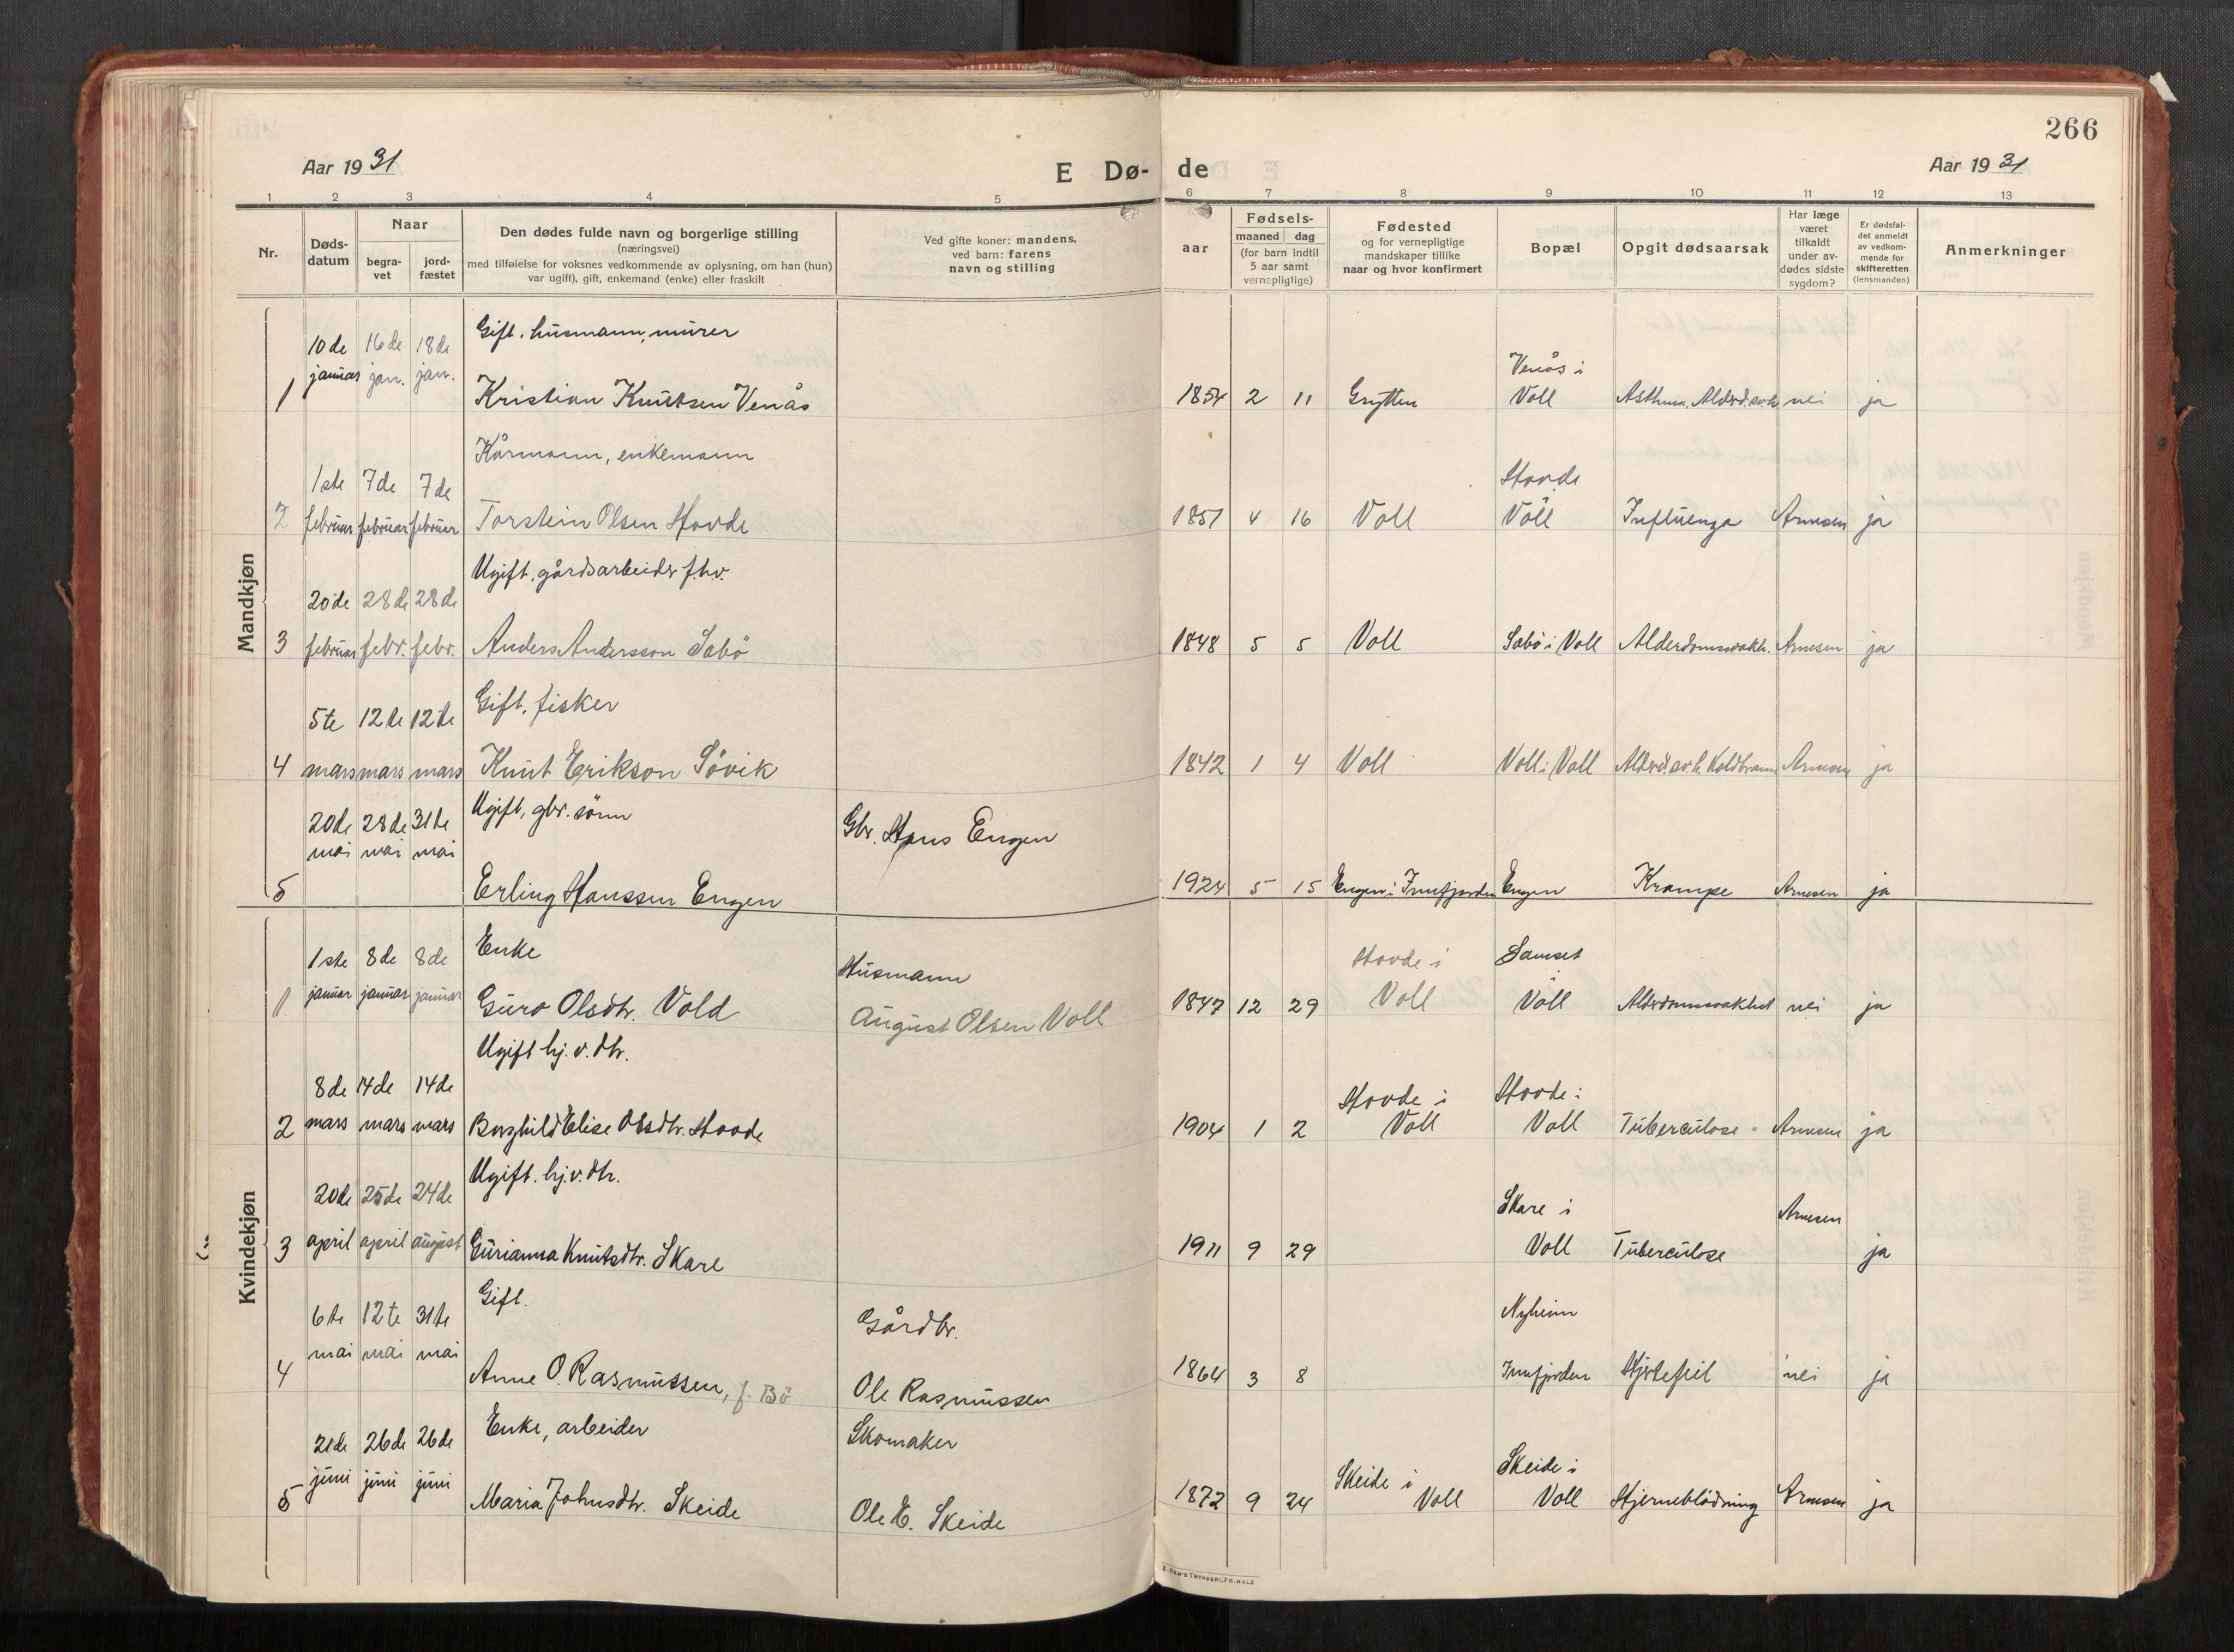 266
Aar 1931
E Dø- de
Aar 1931
1 2 3 4 5 6 7 8 9 10 11 12 13
Nr.
Døds-
datum
Naar
begra-
vet
jord-
fæstet
Den dødes fulde navn og borgerlige stilling
(næringsvei)
med tilføielse for voksnes vedkommende av oplysning, om han (hun)
var ugift), gift, enkemand (enke) eller fraskilt
Ved gifte koner: mandens,
ved barn: farens
navn og stilling
Fødsels-
aar
maaned dag
(for barn indtil
5 aar samt
vernepligtige)
Fødested
og for vernepligtige
mandskaper tillike
naar og hvor konfirmert
Bopæl
Opgit dødsaarsak
Har læge
været
tilkaldt
under av-
dødes sidste
sygdom?
Er dødsfal-
det anmeldt
av vedkom-
mende for
skifteretten
(lensmanden)
Anmerkninger
Mandkjøn
Gift. husmann, murer
10de 16de 18de
januar jan. jan.
Venås i
1 Kristian Knutsen Venås 1854 2 11 Grytten Voll Asthma, Alderd.svh. nei ja
Kårmann, enkemann
1ste 7de 7de
Hovde
2 februar februar februar Torstein Olsen Hovde 1851 4 16 Voll Voll Influenza Arnesen ja
Ugift, gårdsarbeider f.h.v.
20de 28de 28de
3 februar febr. febr. Anders Andersson Sabö 1848 5 5 Voll Sabö i Voll Alderdomssvakh. Arnesen ja
Gift, fisker
5te 12te 12te
4 mars mars mars Knut Erikson Sövik 1842 1 4 Voll Voll i Voll Alderd.sv.h. Koldbrann Arnesen ja
Ugift, gbr. sönn
20de 28de 31te
mai mai mai
Gbr. Hans Engen
5 Erling Hanssen Engen 1924 5 15 Engen i Innfjorden Engen Krampe Arnesen ja
Kvindekjøn
Enke
1ste 8de 8de
Husmann
Hovde i
Samset
1 januar januar januar Guro Olsdtr. Vold August Olsen Voll 1847 12 29 Voll Voll Alderdomssvakhet nei ja
Ugift hj.v. dtr.
8de 14de 14de
Hovde i
Hovde i
2 mars mars mars Borghild Elise Olsdtr. Hovde 1904 1 2 Voll Voll Tuberculose Arnesen ja
Ugift. hj.v. dtr.
20de 25de 24de
Skare i
Arnesen
3 april april august Gurianna Knutsdtr. Skare 1911 9 29 Voll Tuberculose ja
Gift.
6te 12te 31te
mai mai mai
Gårdbr.
Nyheim
4 Anne O. Rasmussen, f. Bö Ole Rasmussen 1864 3 8 Innfjorden Hjertefeil nei ja
Enke, arbeider
21de 26de 26de
juni juni juni
Skomaker
Skeide i
Skeide i
5 Maria Johnsdtr. Skeide Ole E. Skeide 1872 9 24 Voll Voll Hjerneblödning Arnesen ja